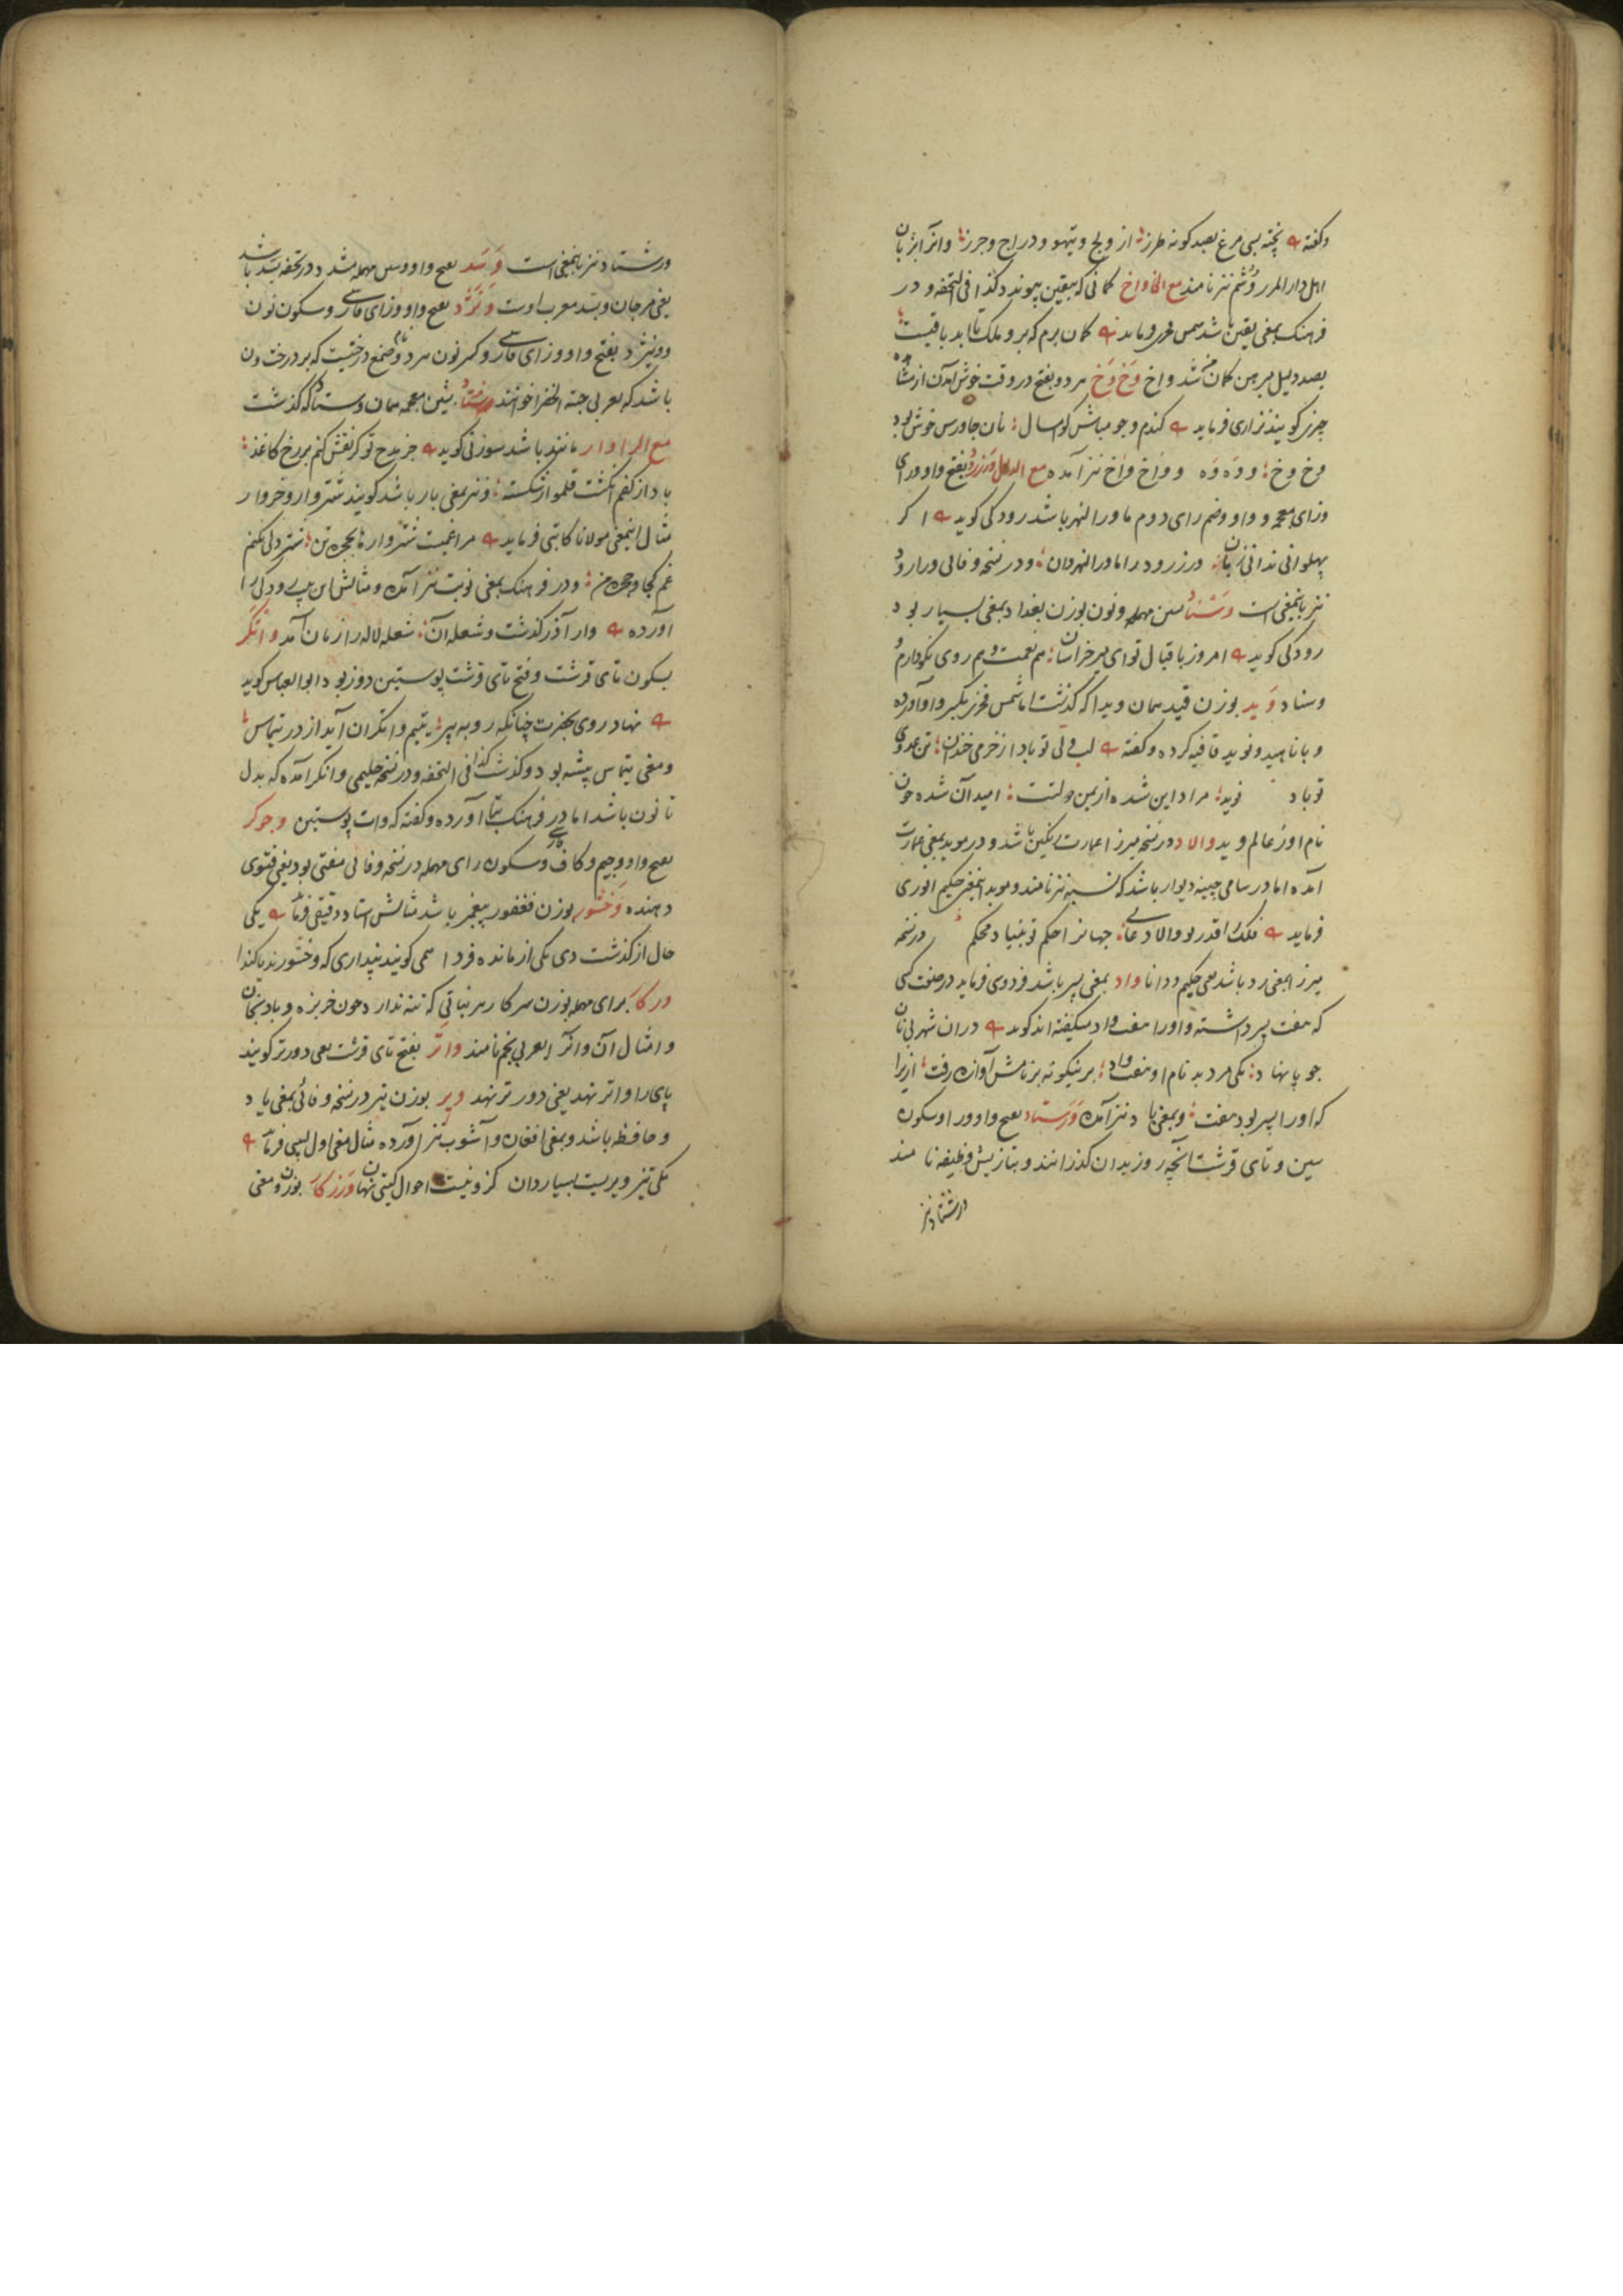 وگفته پخته بسی مرغ بصد گونه طرز از ولج و تیهو و دراج و جرز و آنرا بزبان
اهل دار المرز وشم نیز نامند مع الخا واخ گمانی که بیقین پیوندد کذا فی التحفه و در
فرهنگ بمعنی یقین باشد شمس فخری فرماید گمان برم که برو ملک تا ابد باقیست
بصد دلیل مبرهن گمان شد واخ وخ وخ هر دو بفتح در وقت خوش آمدن از مشاهده
چیزی گویند نزاری فرماید گندم و جو مباش گو امسال نان جاورس خوش بود
وخ وخ و وه وه و واخ واخ نیز آمده مع الدال ورزرود بفتح واو و رای
و زای معجمه و واو و ضم رای دوم ما ورا النهر باشد رودکی گوید اگر
پهلوانی ندانی زبان ورزرود را ماورا النهر دان و در نسخه وفائی ورارود
نیز باینمعنی است وسناد سین مهمله و نون بوزن بغداد بمعنی بسیار بود
رودکی گوید امروز باقبال تو ای میر خراسان هم نعمت و هم روی نکو دارم و
وسناد وید بوزن قید همان ویدا که گذشت اما شمس فخری بکسر واو آورده
و با ناهید و نوید قافیه کرده و گفته لب ولی تو باد از خرمی خندان تن عدوی
تو باد نوید مراد این شده از یمن دولتت امید آن شده چون
نام او ز عالم وید والاد در نسخه میرزا عمارت گلین باشد و در موید بمعنی عمارت
آمده اما در سامی چینه دیوار باشد که نیز نامند و موید اینمعنی حکیم انوری
فرماید فلک را قدر تو والا دعائی جهانرا حکم تو بنیاد محکم در نسخه
میرزا بمعنی رد باشد یعنی حکیم و دانا واد بمعنی پسر باشد فردوسی فرماید در صفت کسی
که هفت پسر داشته و او را هفت واد میگفته اند گوید در ان شهر بی نان
جو پا نهاد یکی مرد بد نام او هفت واد برینگونه بر نامش آوازه رفت ازیرا
که او را پسر بود هفت و بمعنی باد نیز آمده ورستاد بفتح واو و را و سکون
سین و تای قرشت آنچه روز بدان گذرانند و بتازیش وظیفه نامند
ورشتاد نیز
ورشتاد نیز باینمعنی است وسد بفتح واو و سین مهمله مشدد و در تحفه بسد باشد
یعنی مرجان و بسد معرب اوست ونژد بفتح واو و زای فارسی و سکون نون
و ونیژد بفتح واو و زای فارسی و کسر نون هر دو نام صمغ درختیست که بر درخت ون
باشد که بعربی حبة الخضرا خوانند وشناد بشین معجمه همان وسناد که گذشت
مع الرا وار مانند باشد سوزنی گوید جز مدح تو گر نقش کنم بر رخ کاغذ
باد از کفم انگشت قلم وار شکسته و نیز بمعنی بار باشد گویند شتروار و خروار
مثال اینمعنی مولانا کاتبی فرماید مرا غمیست شتروار ها بحجره تن شتر دلی نکنم
غم کجا و حجره من و در فرهنگ بمعنی نوبت نیز آمده و مثالش این بیت رودکی را
آورده وار آذر گذشت و شعله آن شعله لاله را زمان آمد واتگر
بسکون تای قرشت و فتح تای قرشت پوستین دوز بود ابو العباس گوید
نهاد روی بحضرت چنانکه روبه پیر بتیم واتگران آید از در تیماس
و معنی تیماس بیشه بود و گذشت کذا فی التحفه و در نسخه حلیمی وانگر آمده که بدل
تا نون باشد اما در فرهنگ بتا آورده و گفته که وات پوستین وجوگر
بفتح واو و جیم و کاف فارسی و سکون رای مهمله در نسخه وفائی مفتی بود یعنی فتوی
دهنده وخشور بوزن فغفور پیغمبر باشد مثالش استاد دقیقی فرماید یکی
حال از گذشت دی یکی از مانده فردا همی گویند پنداری که وخشورند یا کندا
ورکار برای مهمله بوزن سرکار هر نباتی که تنه ندارد چون خربزه و بادنجان
و امثال آن و آنرا بعربی نجم نامند واتر بفتح تای قرشت یعنی دورتر گویند
پای را واتر نهد یعنی دور تر نهد ویر بوزن تیر در نسخه وفائی بمعنی یاد
و حافظه باشد و بمعنی افغان و آشوب نیز آورده مثال معنی اول لبیبی فرماید
یکی تیز ویر یست بسیاردان کزو نیست احوال گیتی نهان ورزکار بوزن و معنی